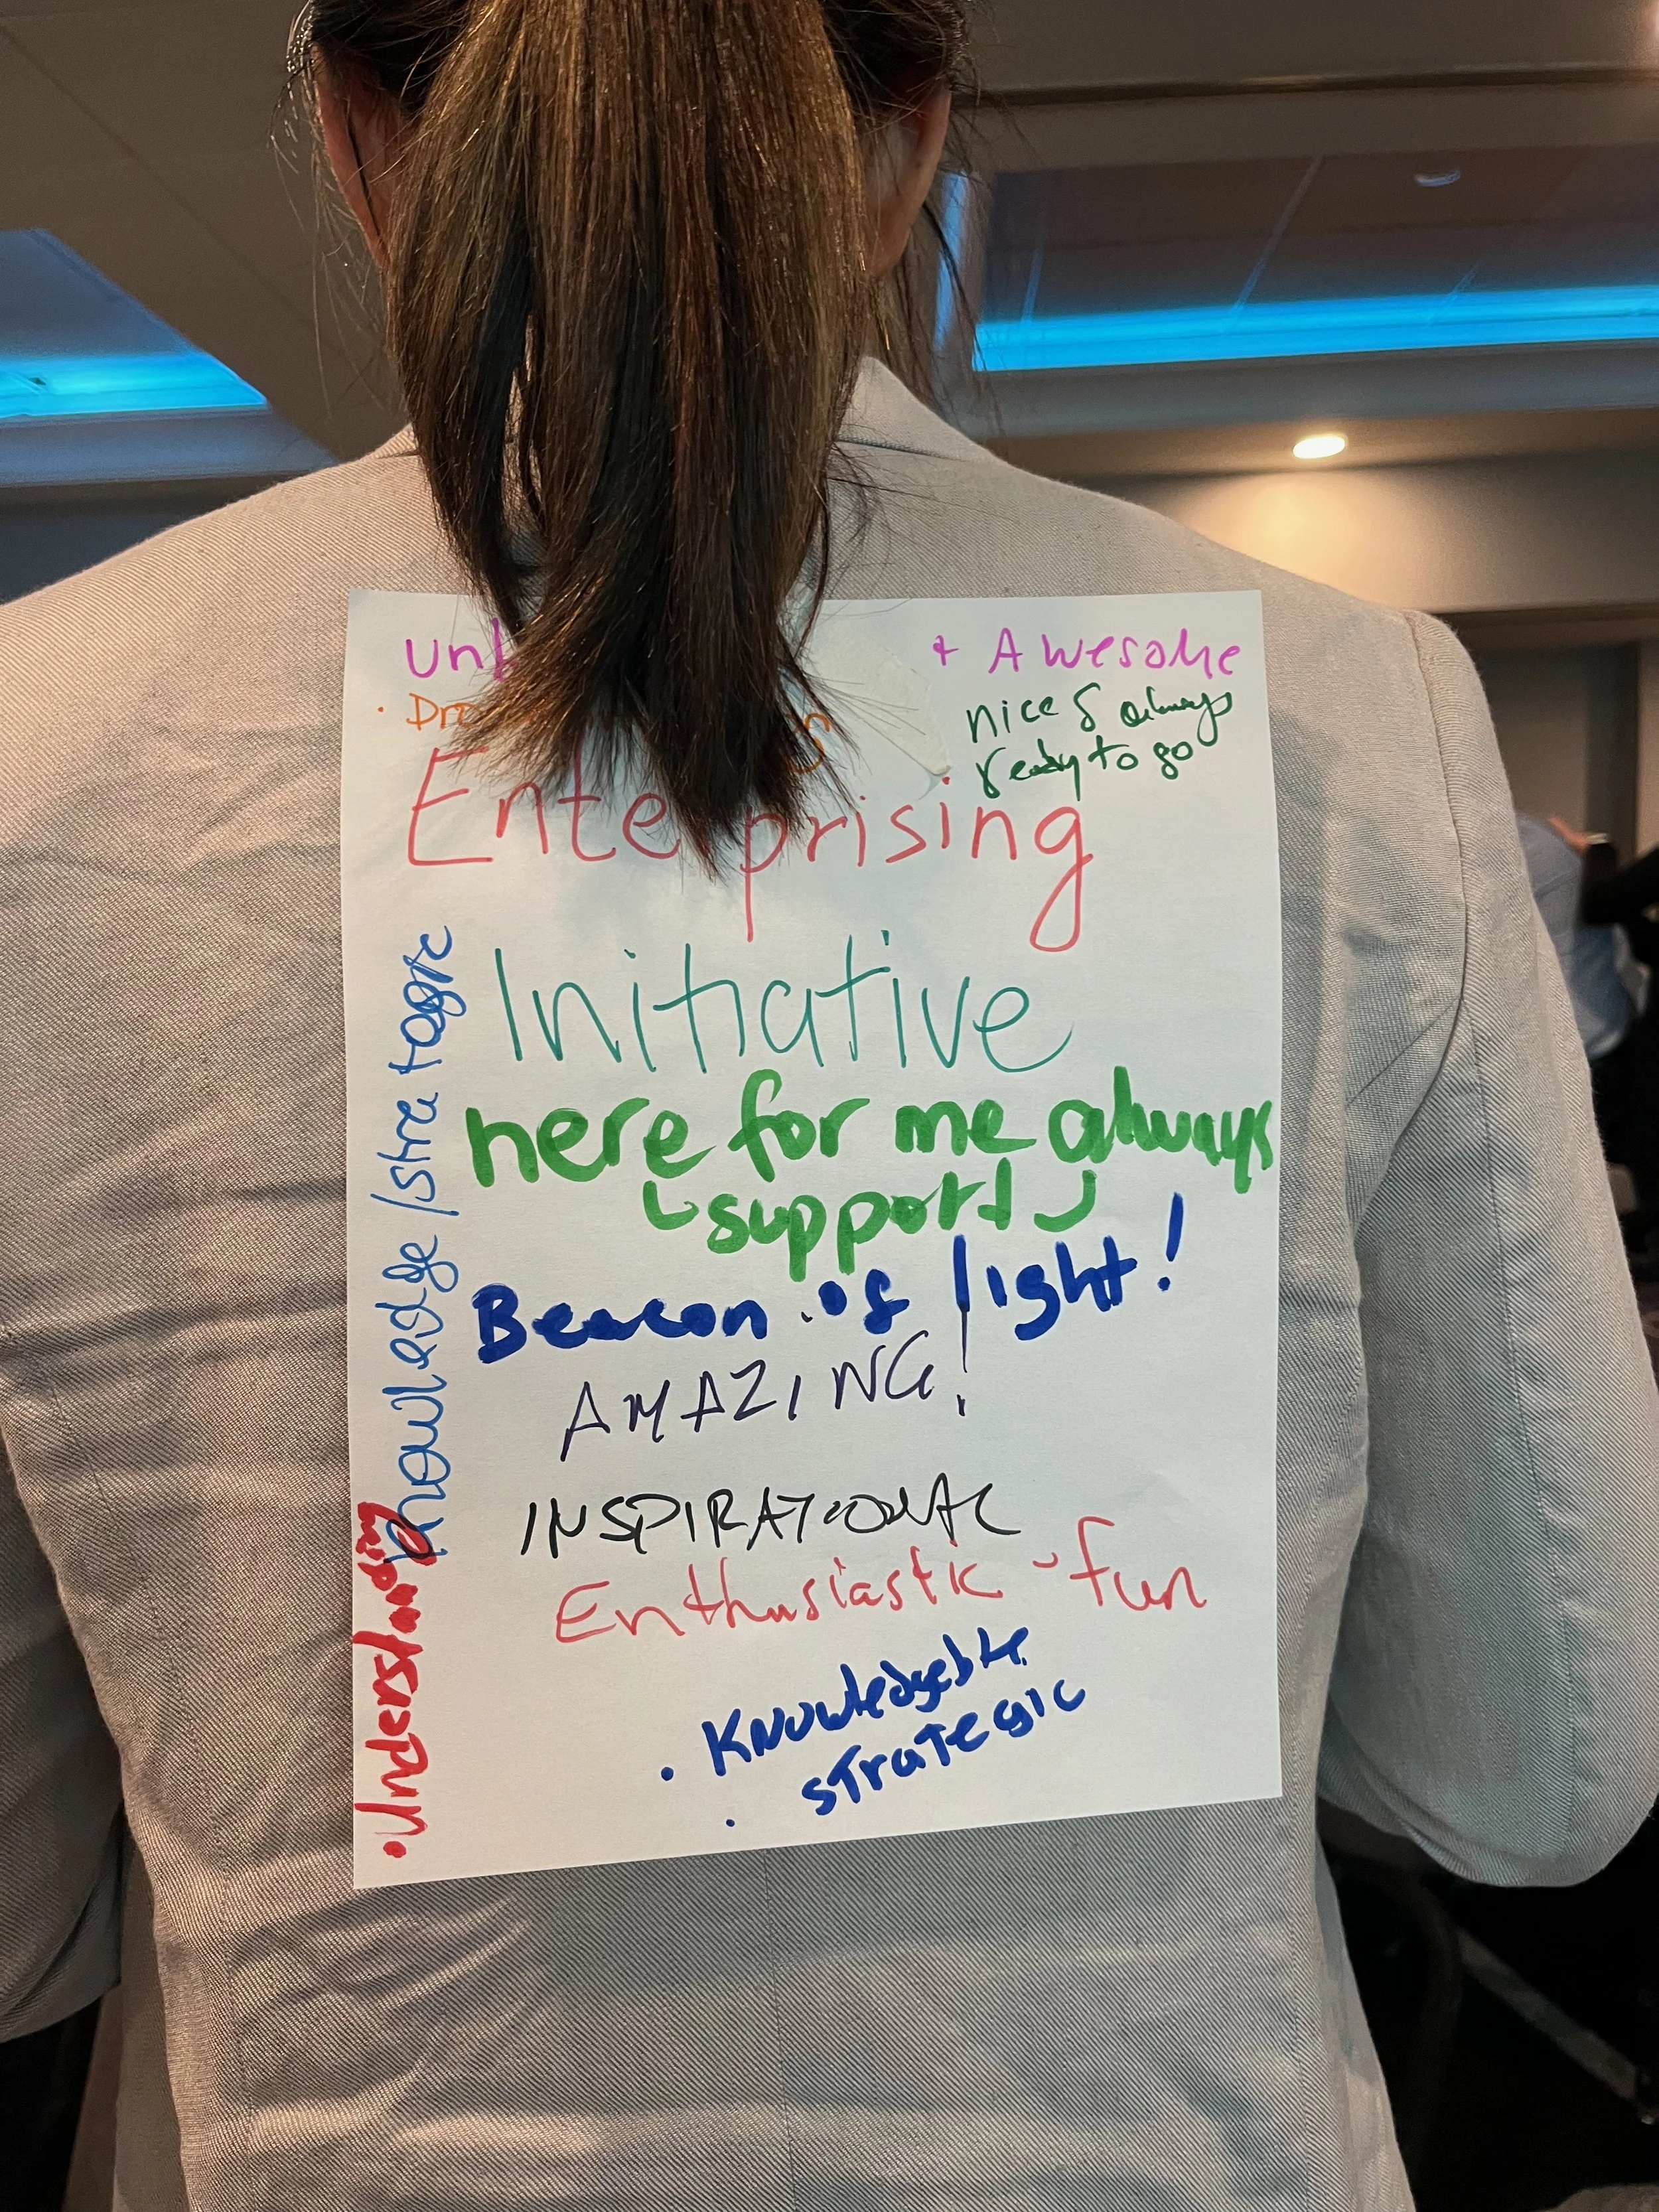 + Awesome
nice & always
ready to go
Enterprising
Initiative
here for me always
support
Beacon of light!
AMAZING!
INSPIRATIONAL
Enthusiastic - fun
· Knowledgeble
· strategic
knowledge / strategic
· Understanding